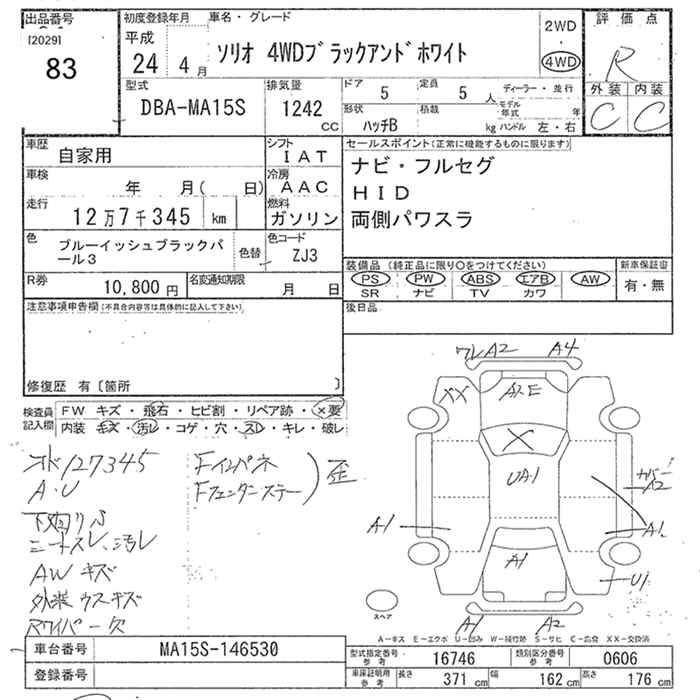 出品番号
[2029]
83
初度登録年月
平成
24 4 月
車名・グレード
ソリオ 4WDブラックアンドホワイト
2WD
4WD
評価点
R
外装 内装
C C
型式
DBA-MA15S
排気量
1242
CC
ドア 5
定員 5 人
形状
ハッチB
積載
kg
ディーラー・並行
モデル年式 年
ハンドル 左・右
車歴
自家用
シフト
IAT
車検
年 月( 日)
冷房
AAC
走行
12万7千345 km
燃料
ガソリン
色
ブルーイッシュブラックパール3
色替
色コード
ZJ3
R券
10,800 円
名変通知期限
月 日
セールスポイント(正常に機能するものに限ります)
ナビ・フルセグ
HID
両側パワスラ
装備品(純正品に限り○をつけてください)
PS PW ABS エアB AW
SR ナビ TV カワ
新車保証書
有・無
後日品
注意事項申告欄(不具合内容等は具体的に記入して下さい)
修復歴 有〔箇所 〕
検査員記入欄
FW キズ・飛石・ヒビ割・リペア跡・×要
内装 キズ・汚レ・コゲ・穴・スレ・キレ・破レ
オド127345
A・U
下廻りS
シートスレ、汚レ
AWキズ
外装ウスキズ
Rワイパー欠
Fインパネ
Fフェンダーステー
歪
ワレA2 A4
XX
A2E
X
UA1
カバーA2
A1
A1
A1
U1
A1 A2
スペア
A-キズ E-エクボ U-凹み W-補修跡 S-サビ C-腐食 XX-交換済
車台番号
MA15S-146530
登録番号
型式指定番号
参考
16746
類別区分番号
参考
0606
車庫証明用
参考
長さ 371 cm
幅 162 cm
高さ 176 cm